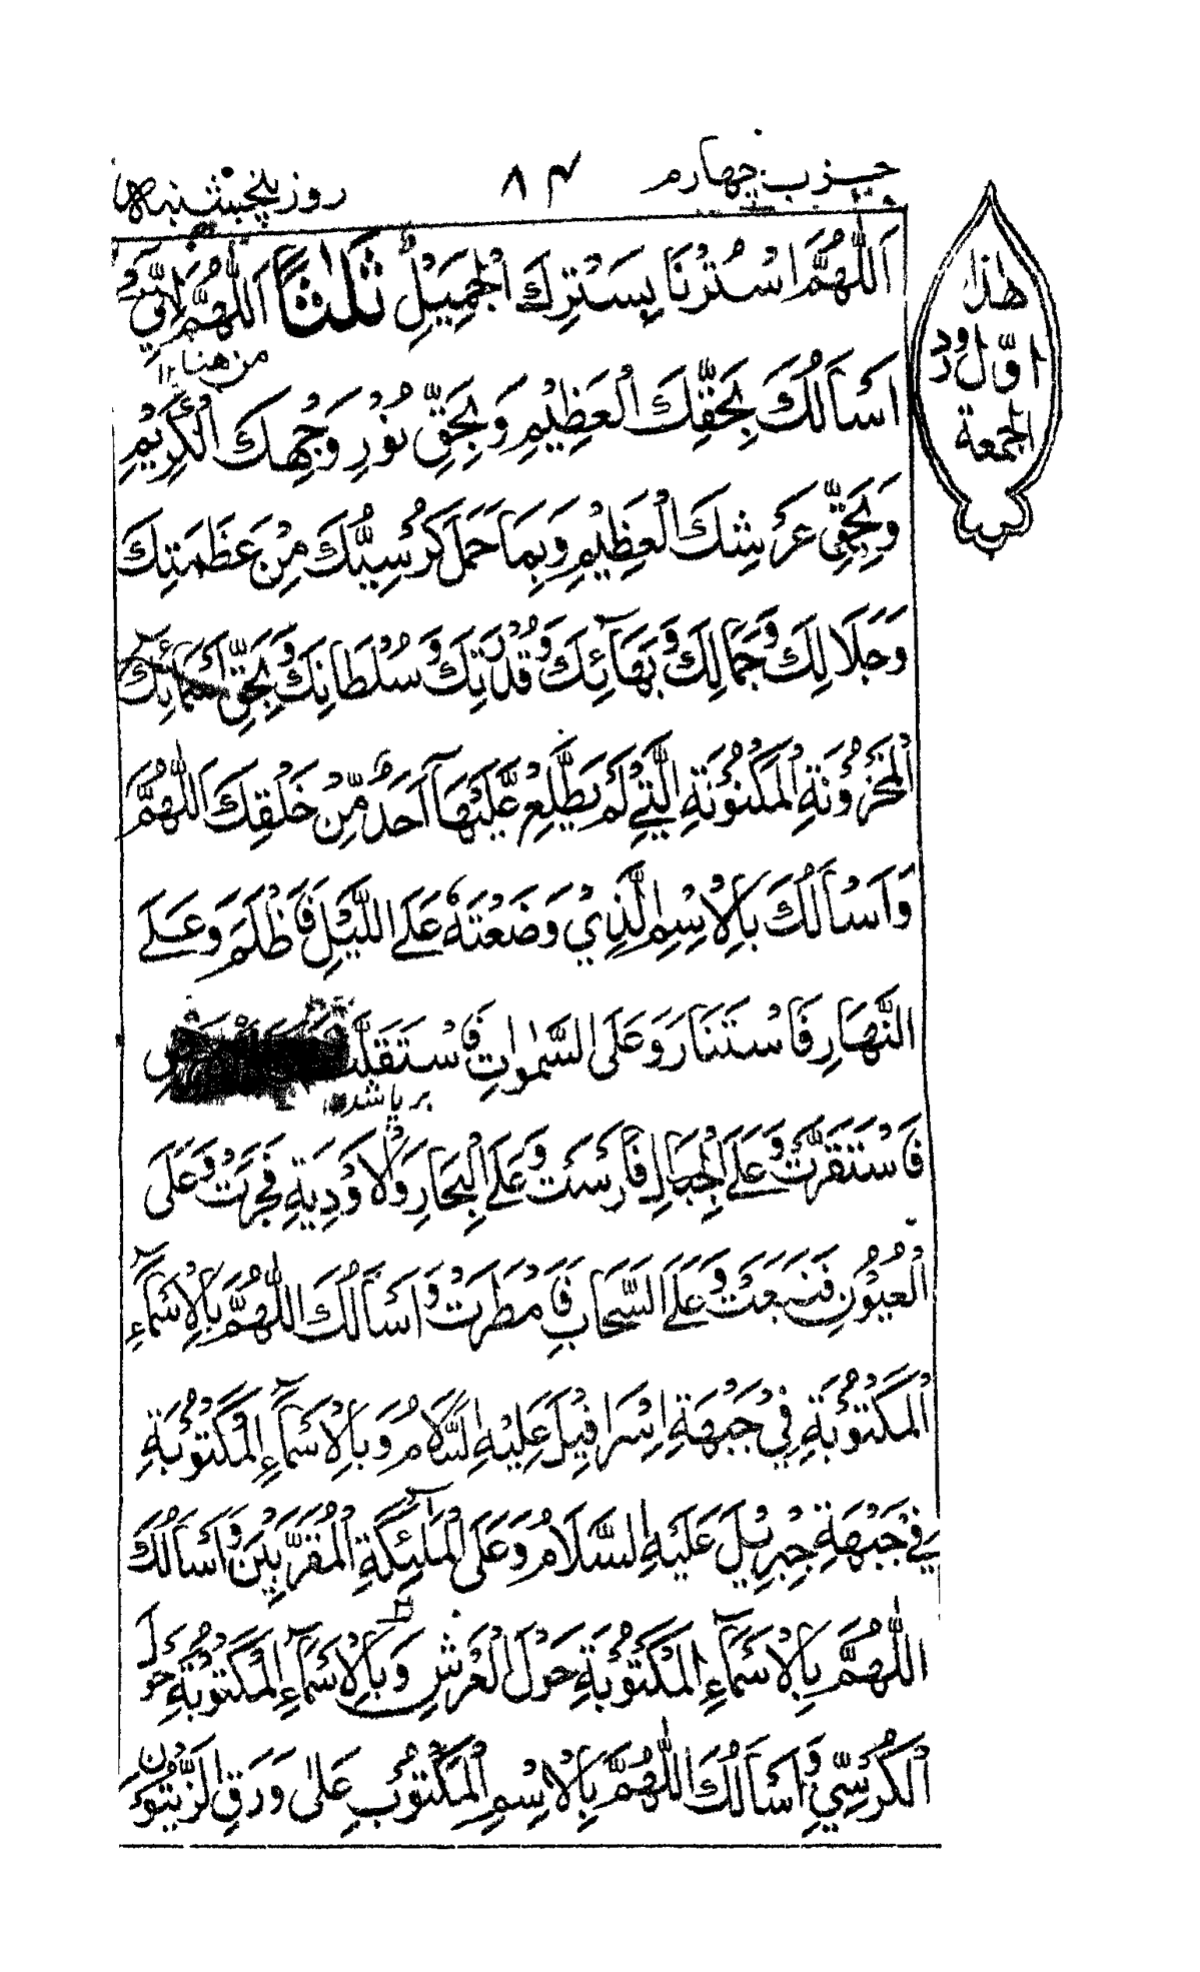 حزب چهارم ٨٤ روز پنجشنبه
هذا
اوّل ورد
الجمعة
اَللّٰهُمَّ اسْتُرْنَا بِسَتْرِكَ الْجَمِيْلِ ثَلٰثًا اَللّٰهُمَّ اِنِّيْ
من هنا ١٢
اَسْاَلُكَ بِحَقِّكَ الْعَظِيْمِ وَبِحَقِّ نُوْرِ وَجْهِكَ الْكَرِيْمِ
وَبِحَقِّ عَرْشِكَ الْعَظِيْمِ وَبِمَا حَمَلَ كُرْسِيُّكَ مِنْ عَظَمَتِكَ
وَجَلَالِكَ وَجَمَالِكَ وَبَهَآئِكَ وَقُدْرَتِكَ وَسُلْطَانِكَ وَبِحَقِّ اَسْمَآئِكَ
الْمَخْزُوْنَةِ الْمَكْنُوْنَةِ الَّتِيْ لَمْ يَطَّلِعْ عَلَيْهَآ اَحَدٌ مِّنْ خَلْقِكَ اَللّٰهُمَّ
وَاَسْاَلُكَ بِالْاِسْمِ الَّذِيْ وَضَعْتَهٗ عَلَى اللَّيْلِ فَاَظْلَمَ وَعَلَى
النَّهَارِ فَاسْتَنَارَ وَعَلَى السَّمٰوَاتِ فَاسْتَقَلَّتْ
برپا شد ١٢
فَاسْتَقَرَّتْ وَعَلَى الْجِبَالِ فَاَرْسَتْ وَعَلَى الْبِحَارِ وَالْاَوْدِيَةِ فَجَرَتْ وَعَلَى
الْعُيُوْنِ فَنَبَعَتْ وَعَلَى السَّحَابِ فَاَمْطَرَتْ وَاَسْاَلُكَ اللّٰهُمَّ بِالْاَسْمَآءِ
الْمَكْتُوْبَةِ فِيْ جَبْهَةِ اِسْرَافِيْلَ عَلَيْهِ السَّلَامُ وَبِالْاَسْمَآءِ الْمَكْتُوْبَةِ
فِيْ جَبْهَةِ جِبْرِيْلَ عَلَيْهِ السَّلَامُ وَعَلَى الْمَلٰٓئِكَةِ الْمُقَرَّبِيْنَ وَاَسْاَلُكَ
اللّٰهُمَّ بِالْاَسْمَآءِ الْمَكْتُوْبَةِ حَوْلَ الْعَرْشِ وَبِالْاَسْمَآءِ الْمَكْتُوْبَةِ حَوْلَ
الْكُرْسِيِّ وَاَسْاَلُكَ اللّٰهُمَّ بِالْاِسْمِ الْمَكْتُوْبِ عَلٰى وَرَقِ الزَّيْتُوْنِ وَ